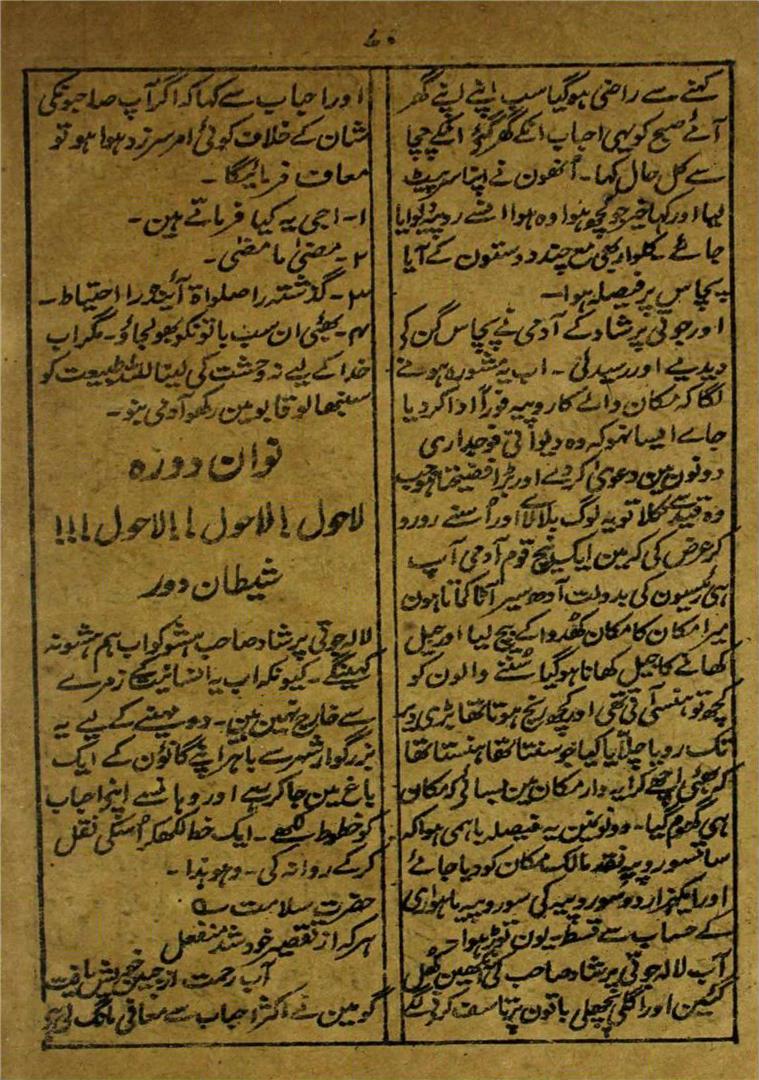 ۷۰
کہنے سے راضی ہوگیا سب اپنے اپنے گھر
آئے صبح کو یہی احباب انکے گھر گئے انکے چچا
سے کل حال کہا۔ اُنھون نے اپنا سر پیٹ
لیا اور کہا خیر جو کچھ ہوا وہ ہوا اسے روپیہ دلوایا
جائے۔ کلوار بھی مع چند دوستون کے آیا
پچاس پر فیصلہ ہوا۔
اور جوتی پرشاد کے آدمی نے پچاس گن کر
دیدیے اور رسید لی۔ اب یہ مشورہ ہونے
لگا کہ مکان والے کا روپیہ فوراً ادا کر دیا
جاے ایسا نہو کہ وہ دیوانی فوجداری
دونون مین دعویٰ کر دے اور بڑا فضیحتا ہو جب
وہ قید سے نکلا تو یہ لوگ بلا لائے اور اُسنے رو رو
کر عرض کی کہ مین ایک نیچ قوم آدمی آپ
ہی رئیسون کی بدولت آدھ سیر آٹا کماتا ہون
میرا مکان کا مکان کھُدوا کے بیچ لیا اور جیل
کھانے کا جیل کھانا ہوگیا سُننے والون کو
کچھ تو ہنسی آتی تھی اور کچھ رنج ہوتا تھا بڑی دیر
تک رویا چلّایا کیا جو سنتا تھا ہنستا تھا
کہ بھئی اچھے کرایہ دار مکان مین بسائے کہ مکان
ہی گھوم گیا۔ دونونمین یہ فیصلہ باہمی ہوا کہ
سات سو روپیہ نقد مالک مکان کو دیا جائے
اور ایکہزار دو سو روپیہ کی سو روپیہ ماہواری
کے حساب سے قسط یون توڑ ہوا
اب لالہ جوتی پرشاد صاحب کی آنکھین کھل
گئین اور اگلی پچھلی باتون پر تاسف کرنے لگے
اور احباب سے کہا کہ اگر آپ صاحبونکی
شان کے خلاف کوئی امر سرزد ہوا ہو تو
معاف فرمائیگا۔
۱۔ اجی یہ کیا فرماتے ہین۔
۲۔ مضیٰ ما مضیٰ۔
۳۔ گذشتہ را صلواۃ آیندہ را احتیاط۔
۴۔ بھئی ان سب باتونکو بھول جاؤ۔ مگر اب
خدا کے لیے نہ وحشت کی لینا للہ طبیعت کو
سنبھالو قابو مین رکھو آدمی بنو۔
نوان دورہ
لاحول! لاحول!! لاحول!!!
شیطان دور
لالہ جوتی پرشاد صاحب ہشو کو اب ہم ہشو نہ
کہینگے۔ کیونکہ اب یہ انسانیت کے زمرے
سے خارج نہین ہین۔ دو مہینے کے لیے یہ
بزرگوار شہر سے باہر اپنے گانؤن کے ایک
باغ مین جا کر رہے اور وہانسے اپنے احباب
کو خطوط لکھے۔ ایک خط لکھکر اُسکی نقل
کر کے روانہ کی۔ وہو ہذا۔
حضرت سلامت ؎
ہر کہ از تقصیر خود شد منفعل
آب رحمت از جبین خویش یافت
گو مین نے اکثر احباب سے معافی مانگ لی ہے